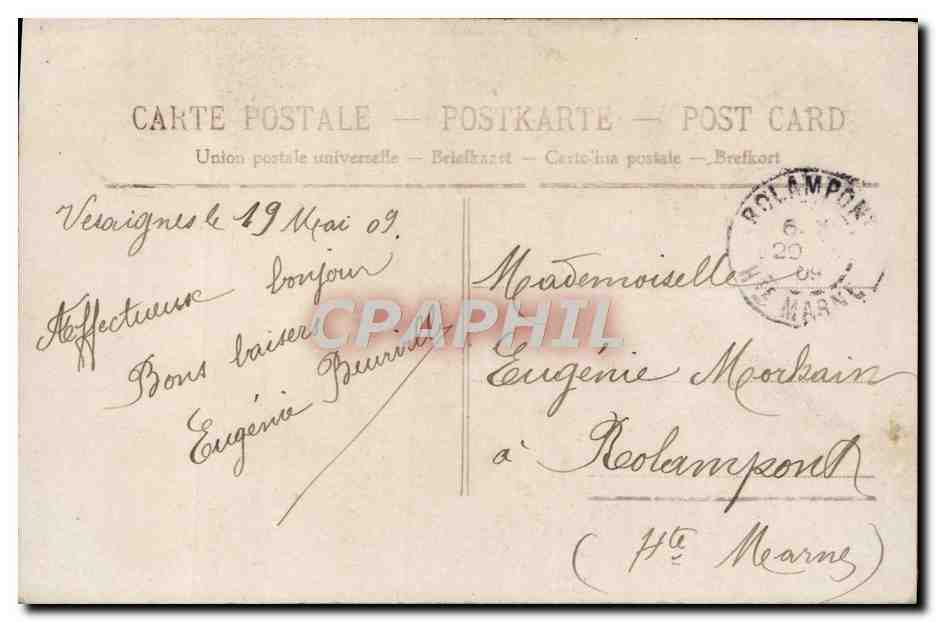 CARTE POSTALE — POSTKARTE — POST CARD
Union postale universelle — Briefkaart — Cartolina postale — Brefkort
Vesaignes le 19 Mai 09.
Affectueux bonjour
Bons baisers
Eugénie
ROLAMPONT
20
09
HTE MARNE
Mademoiselle
Eugénie Morhain
à Rolampont
(Hte Marne)
CPAPHIL